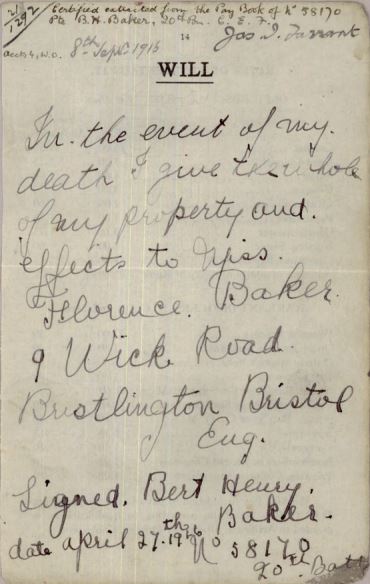 Certified extracted from the Pay Book of No 58170
Pte B. H. Baker, 20th Bn. C. E. F.
14
8th Sept. 1916
WILL
In the event of my.
death I give the whole
of my property and.
effects to Miss.
Florence. Baker.
9 Wick Road.
Bristlington Bristol
Eng.
Signed. Bert Henry.
Baker.
date april 27th 1916 No 58170
20th Batt